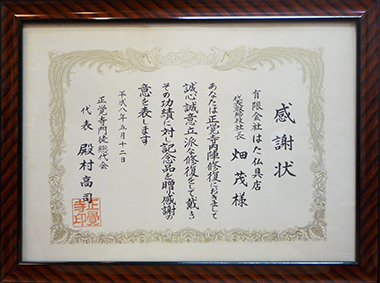 感謝状
有限会社はた仏具店
代表取締役社長 畑茂様
あなたは正覚寺内陣修復におきまして
誠心誠意立派な修復をして戴き
その功績に対し記念品を贈り感謝の
意を表します
平成八年五月十二日
正覚寺門徒総代会
代表 殿村高司
正覚寺印